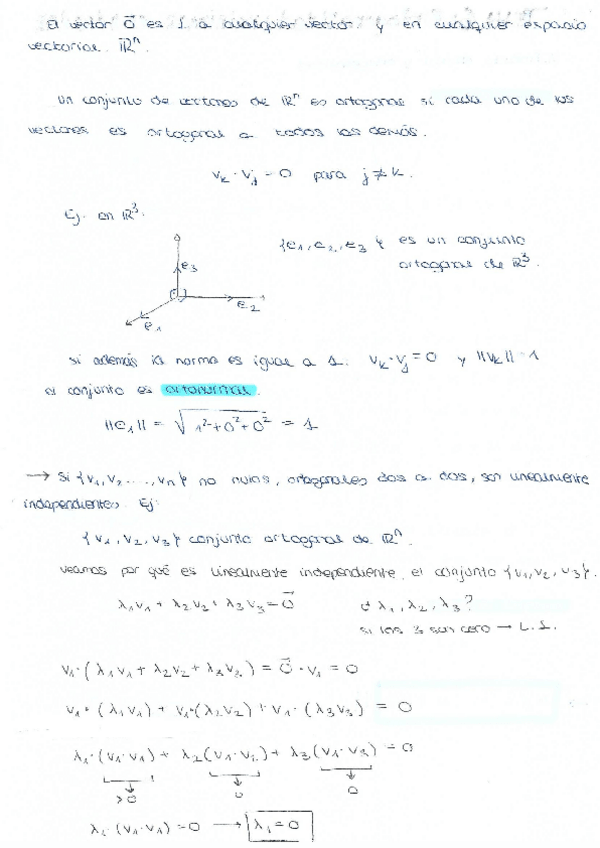 El vector 0⃗ es ⊥ a cualquier vector y en cualquier espacio
vectorial ℝⁿ.
Un conjunto de vectores de ℝⁿ es ortogonal si cada uno de los
vectores es ortogonal a todos los demás.
vₖ · vⱼ = 0 para j ≠ k.
Ej. en ℝ³.
{e₁, e₂, e₃} es un conjunto
ortogonal de ℝ³.
e₃
e₂
e₁
Si además la norma es igual a 1. vₖ · vⱼ = 0 y ||vₖ|| = 1
el conjunto es ortonormal.
||e₁|| = √(1² + 0² + 0²) = 1
→ Si {v₁, v₂ ..., vₙ} no nulos, ortogonales dos a dos, son linealmente
independientes. Ej:
{v₁, v₂, v₃} conjunto ortogonal de ℝⁿ.
Veamos por qué es linealmente independiente el conjunto {v₁, v₂, v₃}.
λ₁v₁ + λ₂v₂ + λ₃v₃ = 0⃗ ¿λ₁, λ₂, λ₃?
si los 3 son cero → L.I.
v₁ · (λ₁v₁ + λ₂v₂ + λ₃v₂) = 0⃗ · v₁ = 0
v₁ · (λ₁v₁) + v₁ · (λ₂v₂) + v₁ · (λ₃v₃) = 0
λ₁ · (v₁ · v₁) + λ₂(v₁ · v₂) + λ₃(v₁ · v₃) = 0
>0 0 0
λ₁ · (v₁ · v₁) = 0 → λ₁ = 0